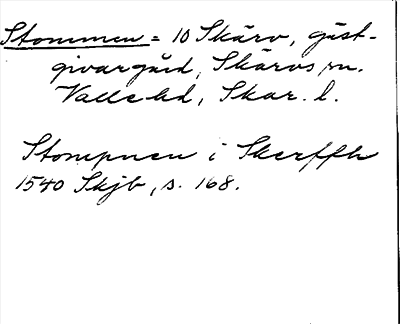 Stommen = 10 Skärv, gäst-
givargård, Skärvs sn.
Valle hd, Skar. l.
Stompnen i Skerffh
1540 Skjb, s. 168.